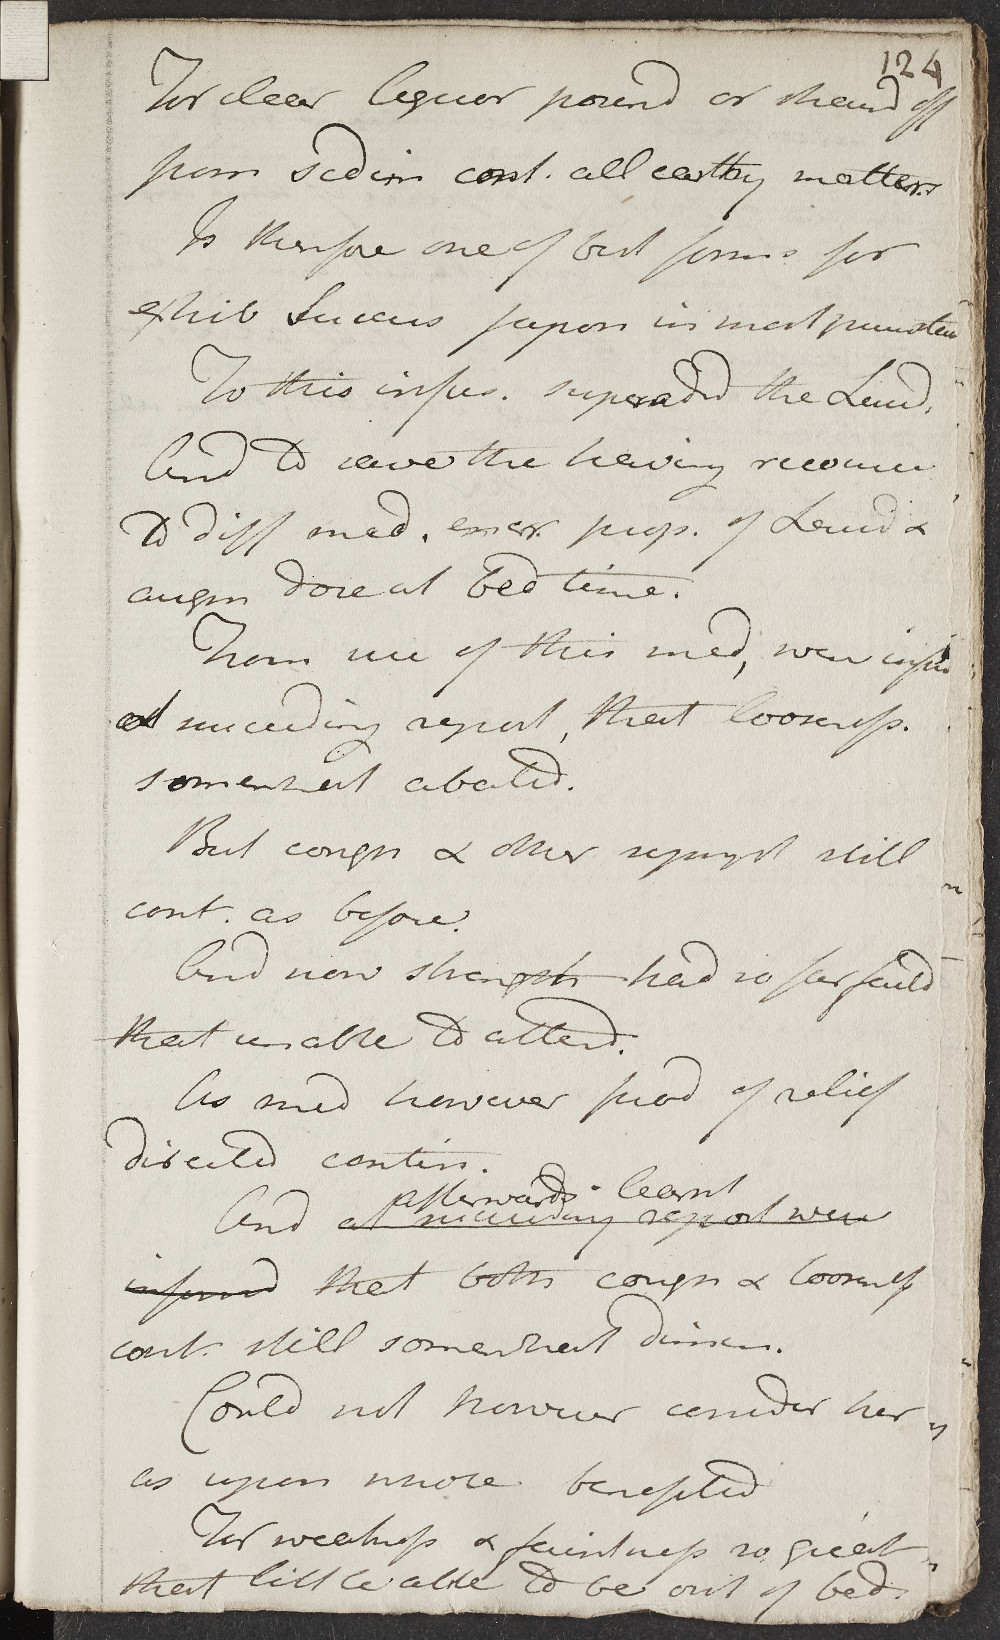 124
For clear liquor pourd or straind off
from sedim cont. all earthy matters
Is therefore one of best forms for
exhib Succus japon in most
To this infus. superadd the Laud.
And to save the having recourse
to diff med. encr. prop. of Laud &
augm dose at bed time.
From use of this med, were
at succeeding report, that looseness.
somewhat abated.
But cough & other sympt still
cont. as before.
And now strength had so far faild
that unable to attend.
As med however prod of relief
directed contin.
afterwards learnt
And at succeeding report were
informd that both cough & loosness
cont. still somewhat dimin.
Could not however consider her
as upon whole benefited
For weakness & faintness so great
that little able to be out of bed.